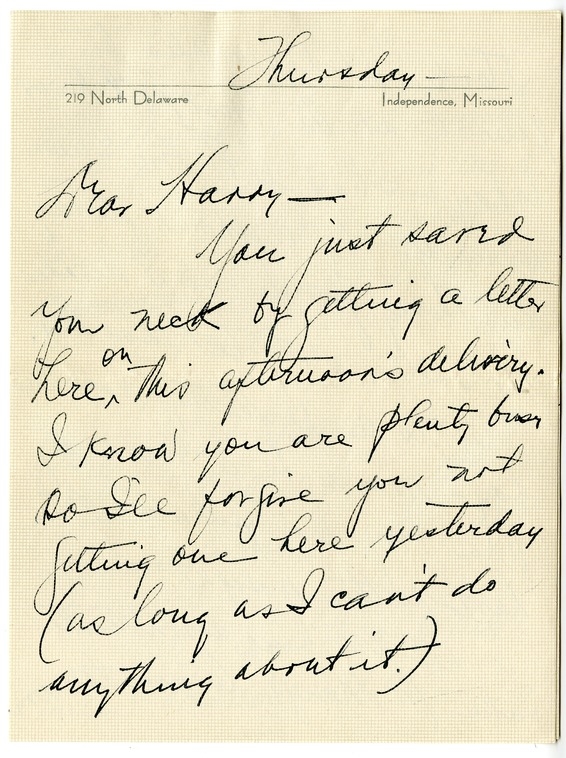 Thursday—
219 North Delaware Independence, Missouri
Dear Harry—
You just saved
your neck by getting a letter
here, on this afternoon's delivery.
I know you are plenty busy
so I'll forgive you not
getting one here yesterday
(as long as I can't do
anything about it.)